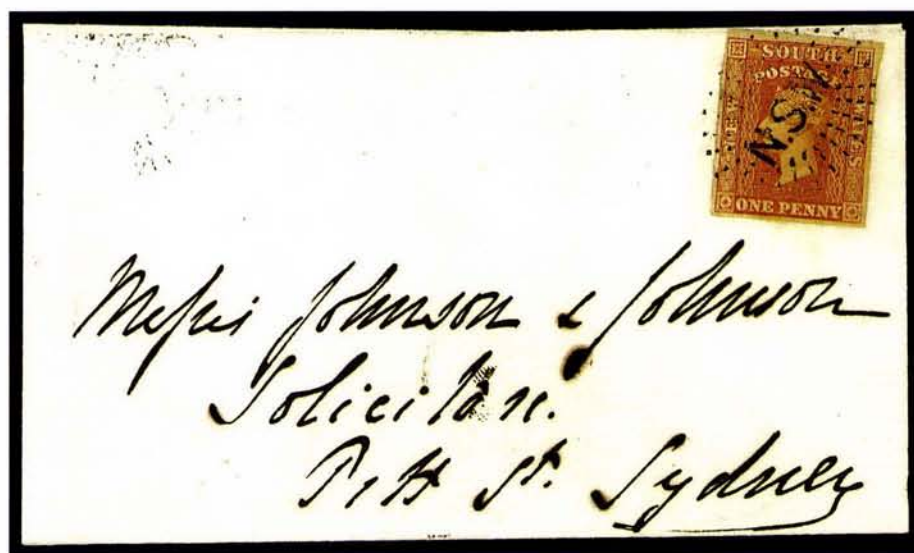 SOUTH
POSTAGE
NEW
WALES
ONE PENNY
N.S.W
Messrs Johnson & Johnson
Solicitors.
Pitt St. Sydney